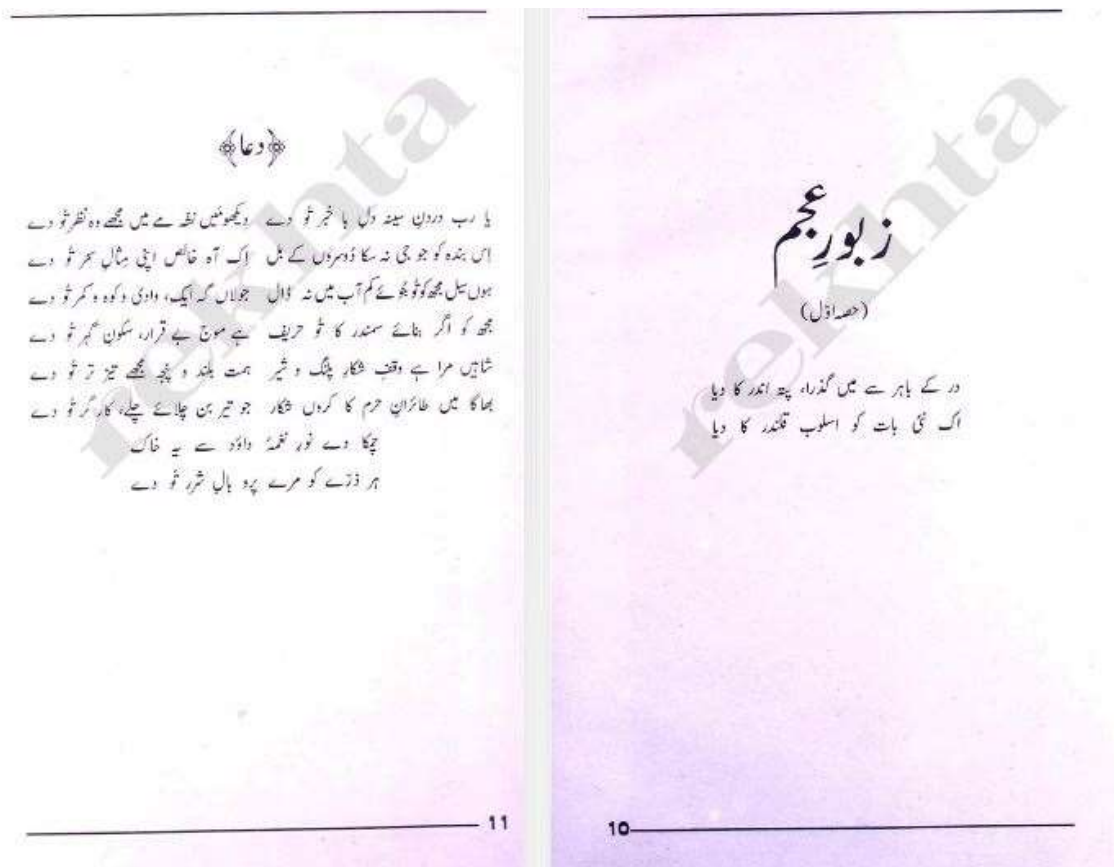 زبورِ عجم
(حصہ اوّل)
در کے باہر سے میں گذرا، پتہ اندر کا دیا
اک نئی بات کو اسلوب قلندر کا دیا
10
دعا
یا رب دردنِ سینہ دلِ با خبر تُو دے دیکھوں مَیں نشہ مے میں مجھے وہ نظر تُو دے
اِس بندہ کو جو جی نہ سکا دُوسروں کے بل اِک آہ خالص اپنی مِثالِ سحر تُو دے
ہوں سیل مجھ کو تُو جُوئے کم آب میں نہ ڈال جولاں گہ ایک، وادی و کوہ و کمر تُو دے
مجھ کو اگر بنائے سمندر کا تُو حریف ہے موج بے قرار، سکونِ گہر تُو دے
شاہیں مرا ہے وقفِ شکارِ پلنگ و شیر ہمت بلند و پنجہ مجھے تیز تر تُو دے
بھاگا میں طائرانِ حرم کا کروں شکار جو تیر بن چلائے چلے، کارگر تُو دے
چمکا دے نورِ نغمۂ داؤد سے یہ خاک
ہر ذرّے کو مرے پرو بالِ شرر تُو دے
11
rekhta
rekhta